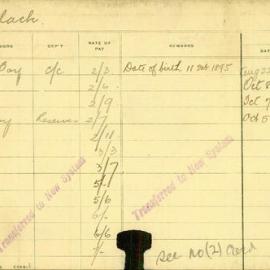 lach.
DEP'T
RATE OF PAY
REMARKS
DA
Boy c/c 2/3 Date of birth 11 Feb 1895
2/6 Oct 8
2/9 Oct 7
Reserve 2/7 Oct 5
2/11
3/3
3/7
5/-
5/6
6/-
6/6
7/-
Transferred to New System
Transferred to New System
see no (2) Card